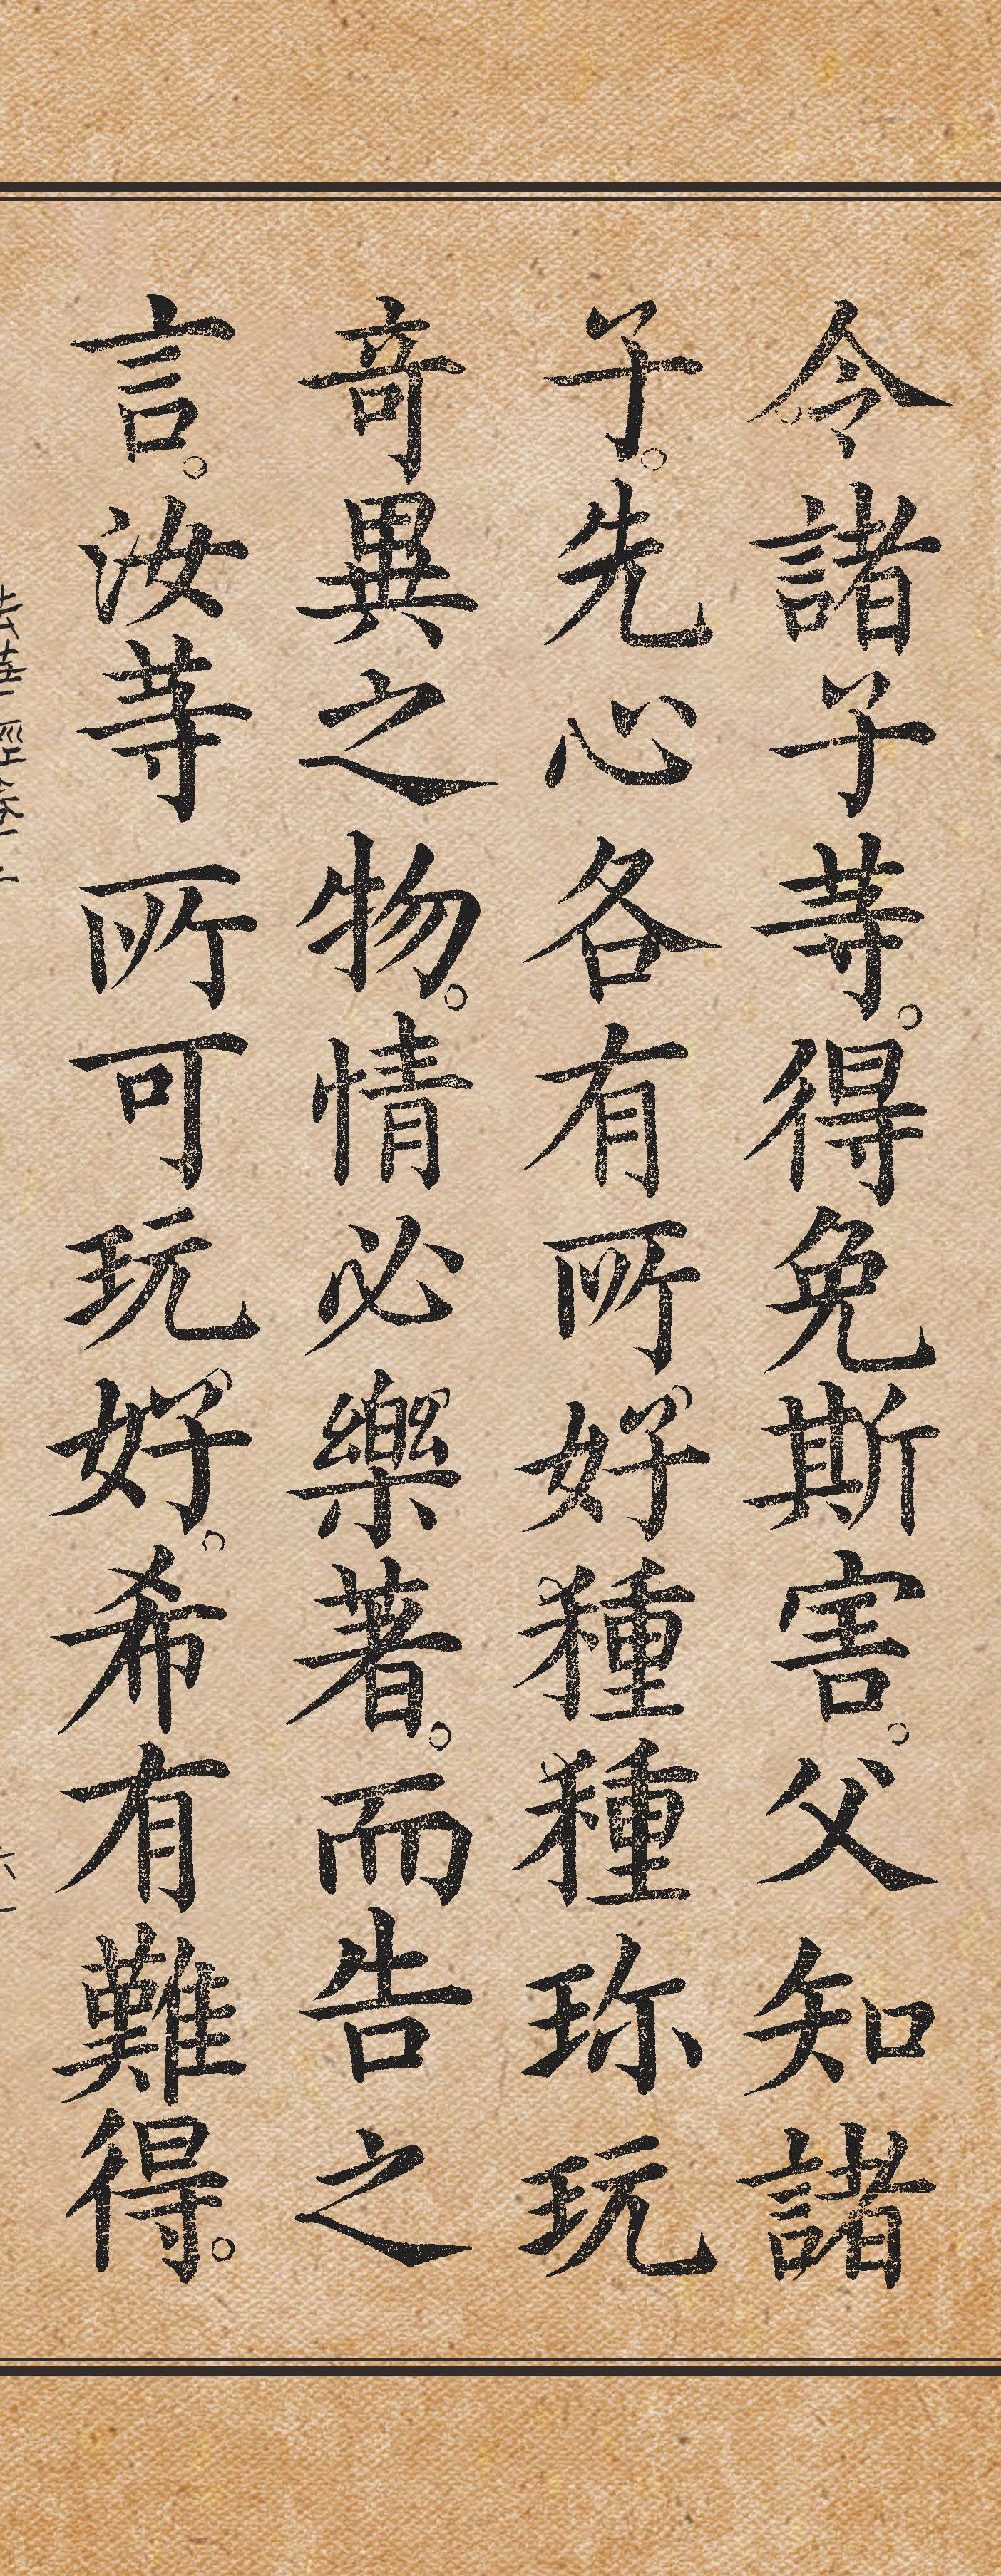 令諸子等。得免斯害。父知諸
子。先心各有所好。種種珍玩
奇異之物。情必樂著。而告之
言。汝等所可玩好。希有難得。